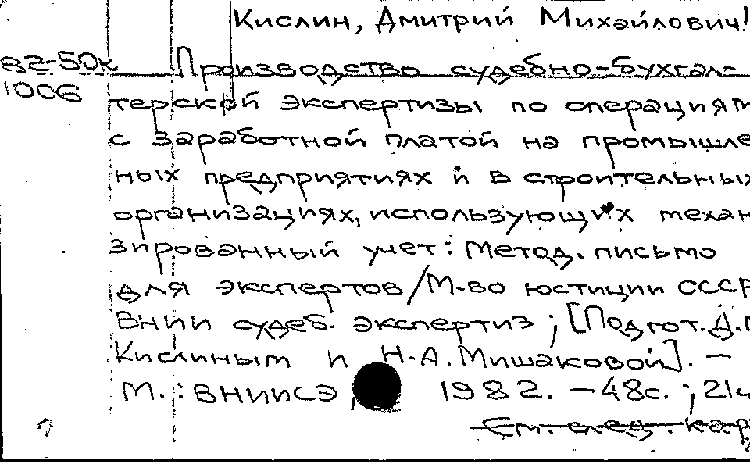 Кислин, Дмитрий Михайлович!
82-50к Производство судебно-бухгал-
1006 терской экспертизы по операциям
с заработной платой на промышле
ных предприятиях и в строительных
организациях, использующих механ
зированный учет: Метод. письмо
для экспертов/М-во юстиции СССР
ВНИИ судеб. экспертиз; [Подгот. Д.
Кислиным и Н.А. Мишаковой]. —
М.: ВНИИСЭ, 1982. - 48с.; 21
См. след. кар